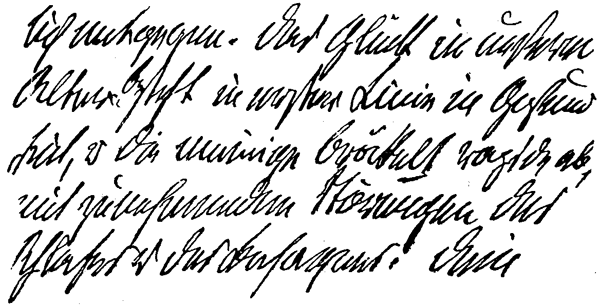 lich entgegen. Das Glück in unserem
Alter besteht in erster Linie in Gesund
heit, u die meinige bröckelt rapide ab,
mit zunehmenden Störungen des
Schlafes u des Behagens. Eine